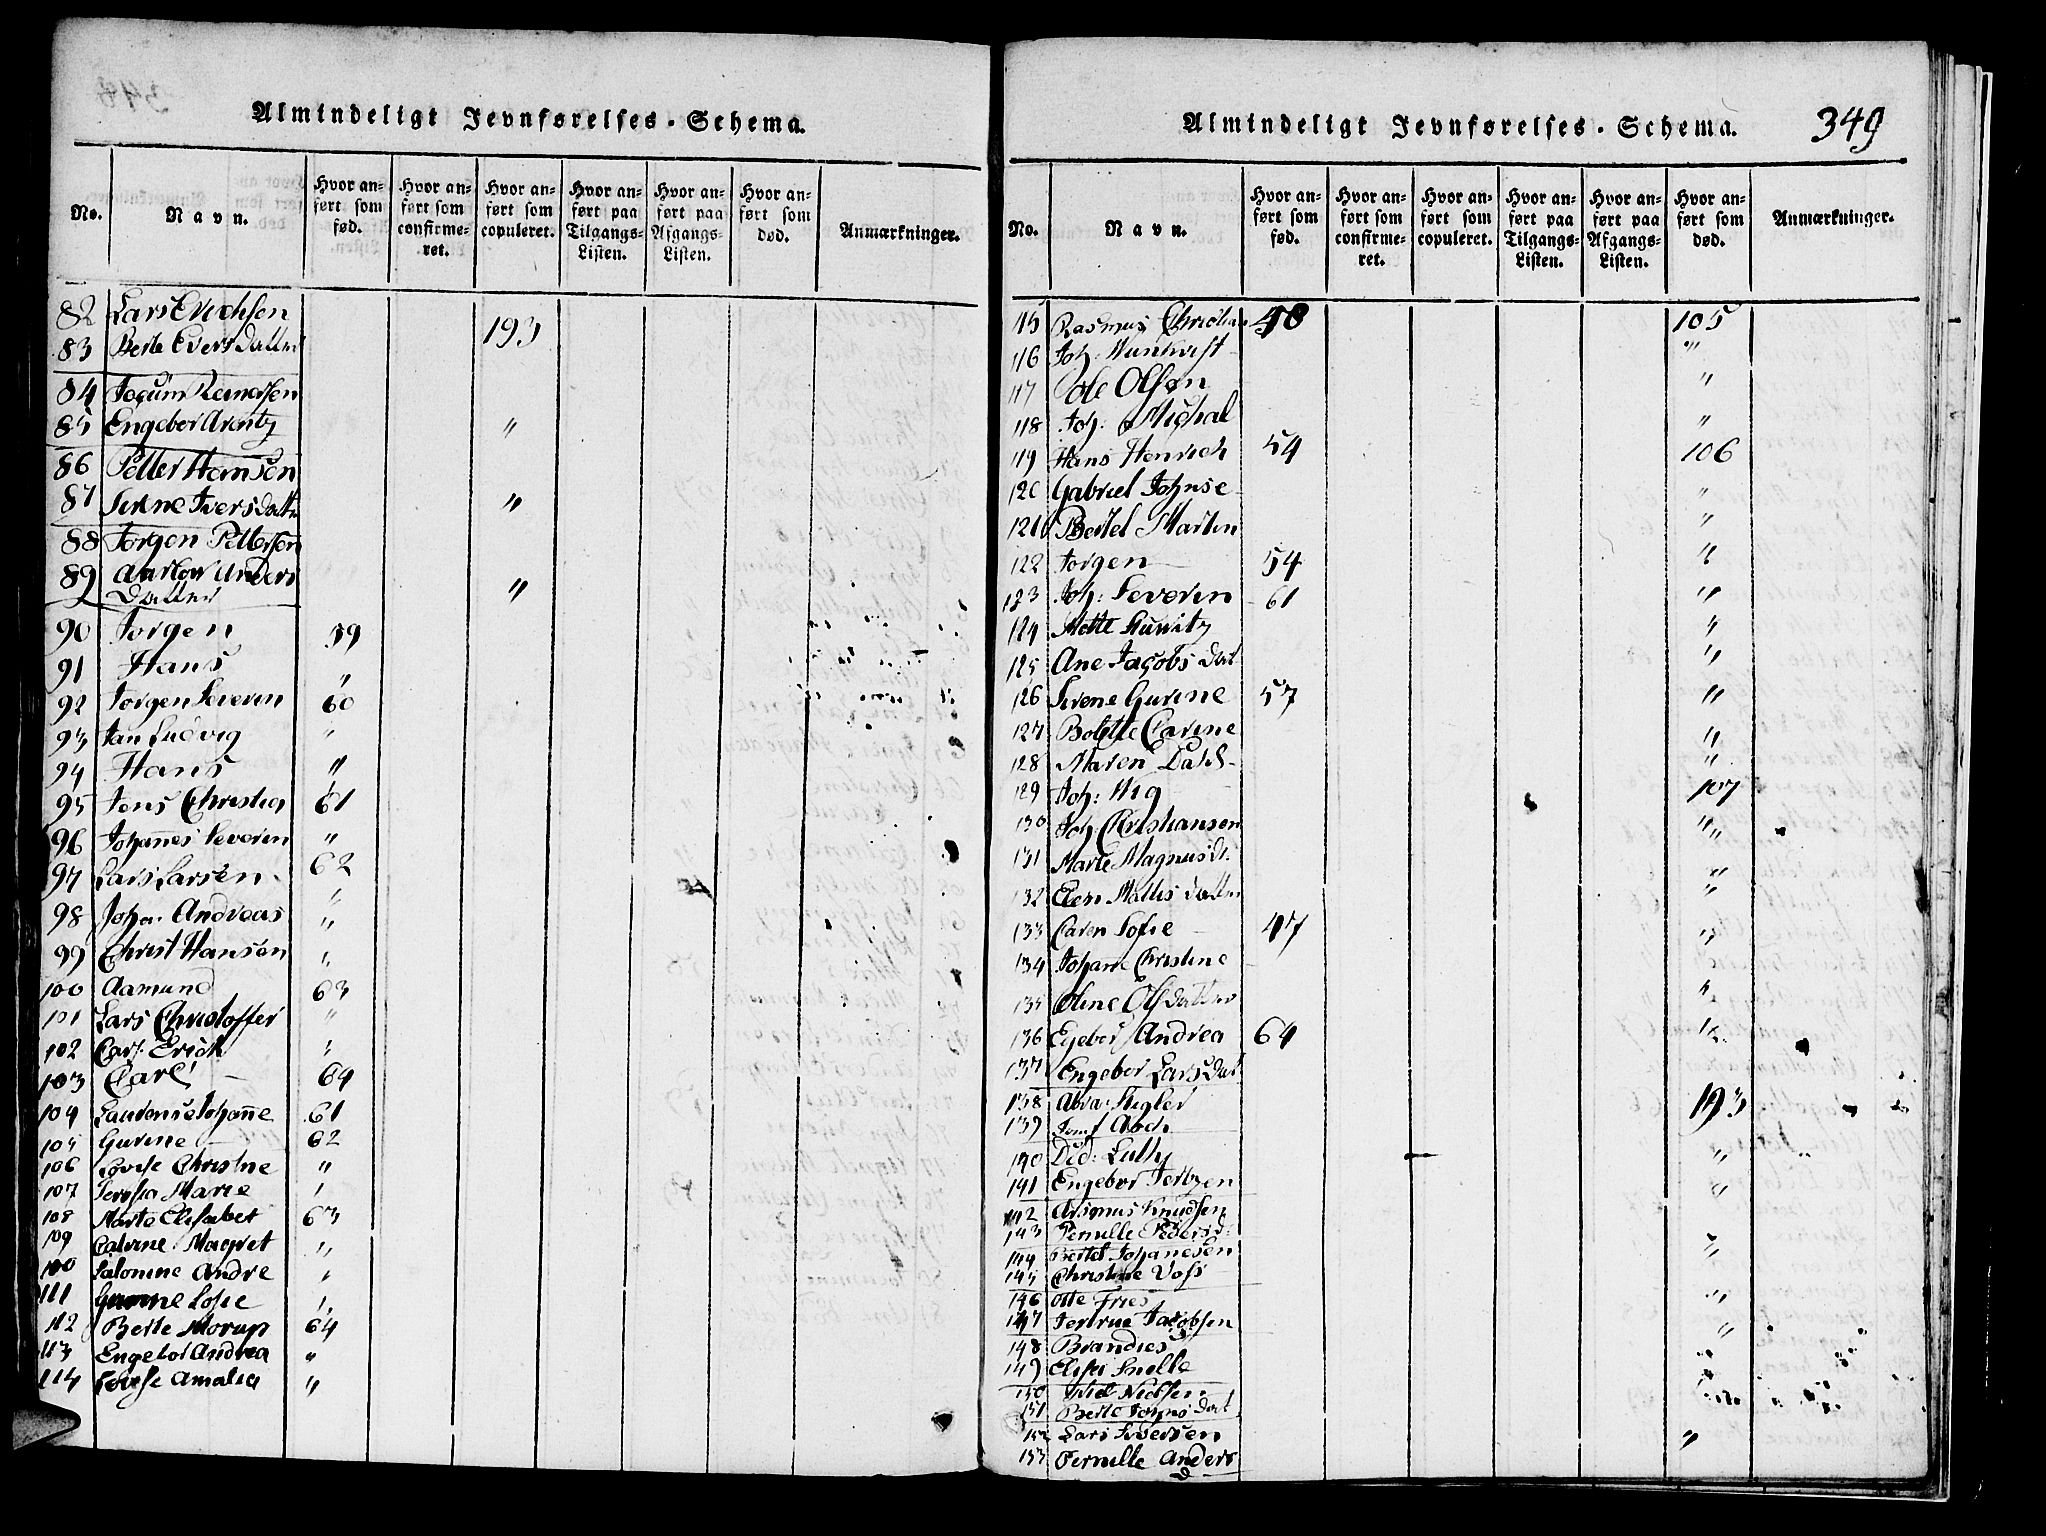 Almindeligt Jevnførelses-Schema.
No. Navn. Hvor anført som fød. Hvor anført som confirmeret. Hvor anført som copuleret. Hvor anført paa Tilgangs-Listen. Hvor anført paa Afgangs-Listen. Hvor anført som død. Anmærkninger.
82 Lars
83 Berte Evers Datter 193
84 Jocum
85 Engebor Arentz "
86 Petter Hansen
87 Sirene Iversdatter "
88 Jørgen Pettersen
89 Anders
Datter "
90 Jørgen 59
91 Hans "
92 Jørgen Severin 60
93 Jan Ludvig "
94 Hans "
95 Jens Christia 61
96 Johannes Severin "
97 Lars Larsen 62
98 Joha: Andreas "
99 Christ Hansen "
100 Aamund 63
101 Lars Christoffer "
102 Carl Erich "
103 Carl 64
104 Laurense Johanne 61
105 Gurine 62
106 Lovise Christne "
107 Serefia Marie "
108 Marte Elisabet 63
109 Catrine Magret "
100 Salomine Andre "
111 Gurine Sofie "
112 Berte Morup 64
113 Engebor Andrea "
114 Lovise Amalia "
Almindeligt Jevnførelses-Schema. 349
No. Navn. Hvor anført som fød. Hvor anført som confirmeret. Hvor anført som copuleret. Hvor anført paa Tilgangs-Listen. Hvor anført paa Afgangs-Listen. Hvor anført som død. Anmærkninger.
115 Rasmus Christia 58 105
116 Joh: "
117 Ole Olsøn "
118 Joh: Michal "
119 Hans Henrich 54 106
120 Gabriel Johnse "
121 Bertel Martin "
122 Jørgen 54 "
123 Joh: Severin 61 "
124 Mette "
125 Ane Jacobs Dat "
126 Sirene Gurine 57 "
127 Bolette Carine "
128 Maren Dahl "
129 Joh: Wig 107
130 Joh: Christiansen "
131 Marte Magnusd: "
132 Elen Mattis Datter "
133 Caren Sofie 47 "
134 Johane Christine
135 Oline Olsdatter "
136 Egebor Andrea 64 "
137 Engebor Lars Dat
138 Abra: 193
139
140 Did: "
141 Engebor "
142 Asmus Knudsen
143 Pernille Pedersd:
144 Bertel Johanesen "
145 Christine Voss
146 Otte Fries "
147 Jertrue Jacobsen
148 Brandies
149 Elisa
150 Nielsen
151 Berte Johns Dat
152 Lars Iversen "
153 Pernille Anders
D